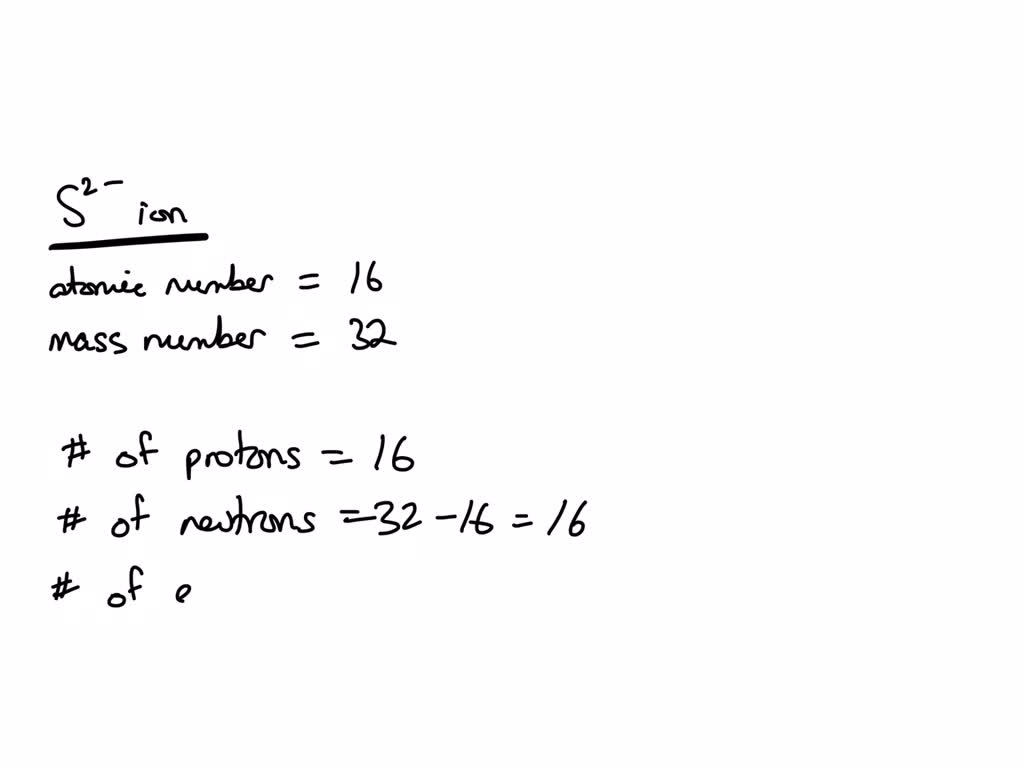 S²⁻ ion
atomic number = 16
mass number = 32
# of protons = 16
# of neutrons = 32 - 16 = 16
# of e